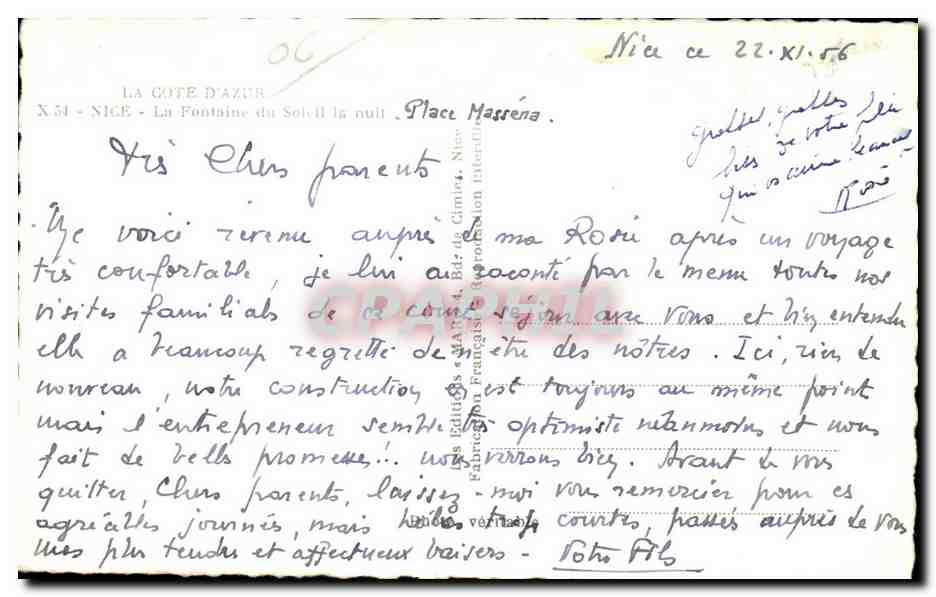 06
Nice ce 22.XI.56
LA COTE D'AZUR
X.54 - NICE - La Fontaine du Soleil la nuit . Place Masséna .
grosses, grosses
bises de votre
qui vs aime
Rosie
Très Chers parents
Me voici revenu auprès de ma Rosie après un voyage
très confortable, je lui ai raconté par le menu toutes nos
visites familiales de ce court séjour avec vous et bien entendu
elle a beaucoup regretté de n'être des nôtres. Ici, rien de
nouveau, notre construction en est toujours au même point
mais l'entrepreneur semble très optimiste néanmoins et nous
fait de belles promesses!.. nous verrons bien. Avant de vous
quitter, Chers parents, laissez-moi vous remercier pour ces
agréables journées, mais hélas trop courtes, passées auprès de vous
Mes plus tendres et affectueux baisers - Votre Fils
Les Editions « MAR », Bd. de Cimiez, Nice
Fabrication Française - Reproduction interdite
Photo véritable
CPARAMA